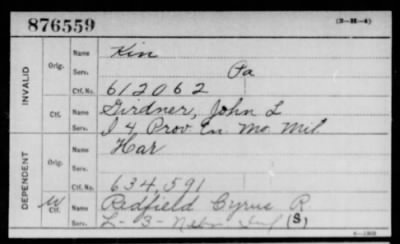 876559 (3-H-4)
INVALID
Orig. Name Kin
Serv. Pa
Ctf. No. 612062
Ctf. Name Girdner, John L
Serv. I 4 Prov En. Mo. Mil.
DEPENDENT
Orig. Name Har
Serv.
Ctf. No. 634,591
W Ctf. Name Redfield Cyrus R.
Serv. L-3- Nebr Inf (S)